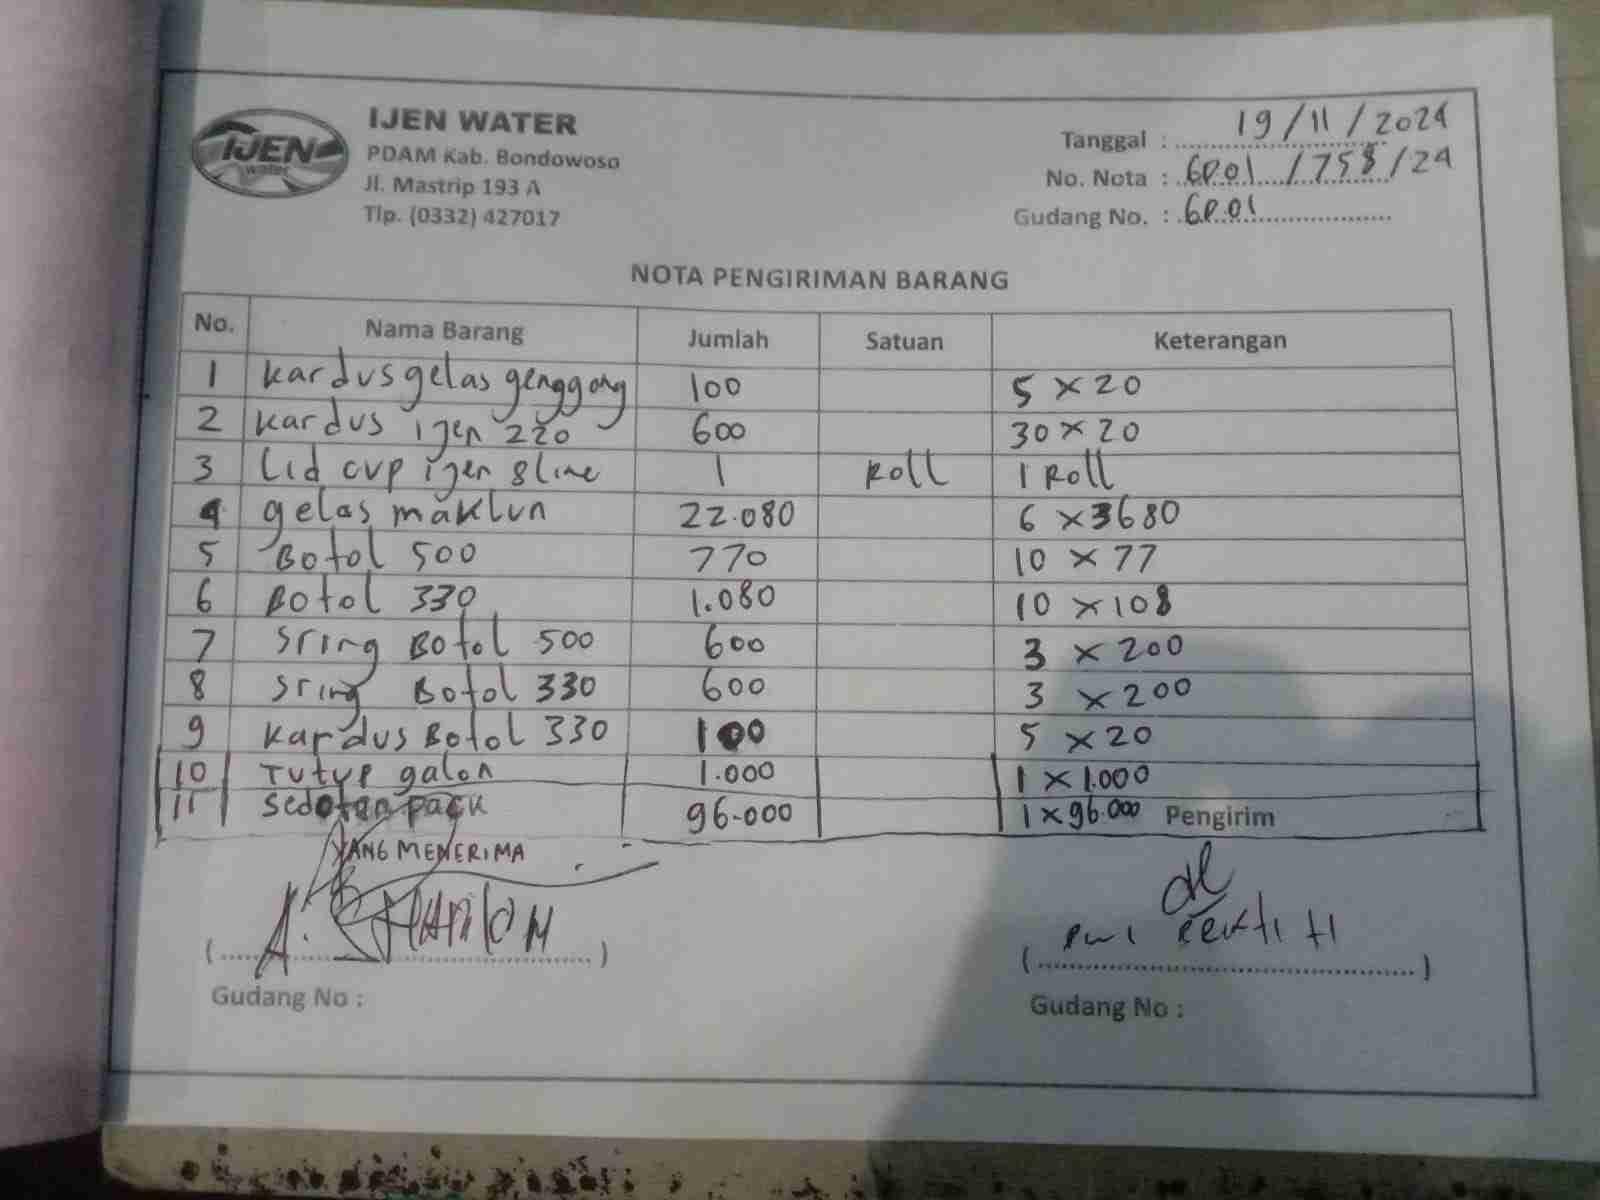 IJEN water
IJEN WATER
PDAM Kab. Bondowoso
Jl. Mastrip 193 A
Tlp. (0332) 427017
Tanggal : 19/11/2024
No. Nota : GP.01/758/24
Gudang No. : GP.01
NOTA PENGIRIMAN BARANG
No. Nama Barang Jumlah Satuan Keterangan
1 Kardus gelas genggong 100 5 x 20
2 Kardus ijen 220 600 30 x 20
3 Lid cup ijen 8 line 1 Roll 1 Roll
4 gelas maklun 22.080 6 x 3680
5 Botol 500 770 10 x 77
6 Botol 330 1.080 10 x 108
7 Sring Botol 500 600 3 x 200
8 Sring Botol 330 600 3 x 200
9 Kardus Botol 330 100 5 x 20
10 Tutup galon 1.000 1 x 1.000
11 Sedotan pack 96.000 1 x 96.000
Pengirim
YANG MENERIMA
(....................)
(....................)
Gudang No :
Gudang No :